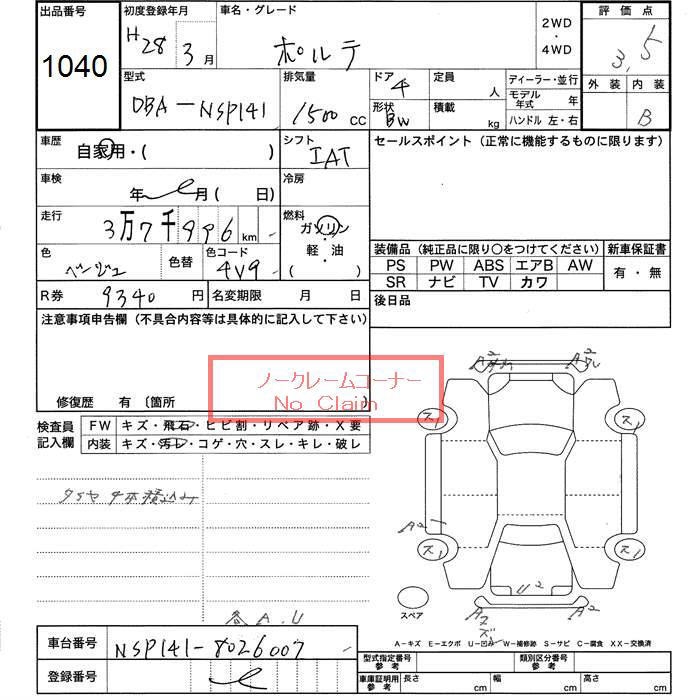 出品番号 初度登録年月 車名・グレード 2WD ・ 4WD 評価点
1040 H28 3月 ポルテ 3.5
型式 排気量 ドア 4 定員 人 ディーラー・並行 モデル年式 年 外装 内装
DBA-NSP141 1500 CC 形状 BW 積載 kg ハンドル 左・右 B
車歴 自家用・( ) シフト IAT セールスポイント(正常に機能するものに限ります)
車検 年 月( 日) 冷房
走行 3万7千996 km 燃料 ガソリン ・ 軽・油 ( )
色 ベージュ 色替 色コード 4V9
装備品(純正品に限り○をつけてください) 新車保証書
PS PW ABS エアB AW 有・無
SR ナビ TV カワ
R券 9340 円 名変期限 月 日 後日品
注意事項申告欄(不具合内容等は具体的に記入して下さい)
ノークレームコーナー
No Claim
修復歴 有 〔箇所 〕
検査員記入欄 FW キズ・飛石・ヒビ割・リペア跡・X要
内装 キズ・汚レ・コゲ・穴・スレ・キレ・破レ
タイヤ4本積込み
A2 A2
ス1 ス1
A2
ス1 ス1
U2
A2 A2
スペア
各A.U
A-キズ E-エクボ U-凹み W-補修跡 S-サビ C-腐食 XX-交換済
車台番号 NSP141-8026007
登録番号
型式指定番号 参考 類別区分番号 参考
車庫証明用 参考 長さ cm 幅 cm 高さ cm